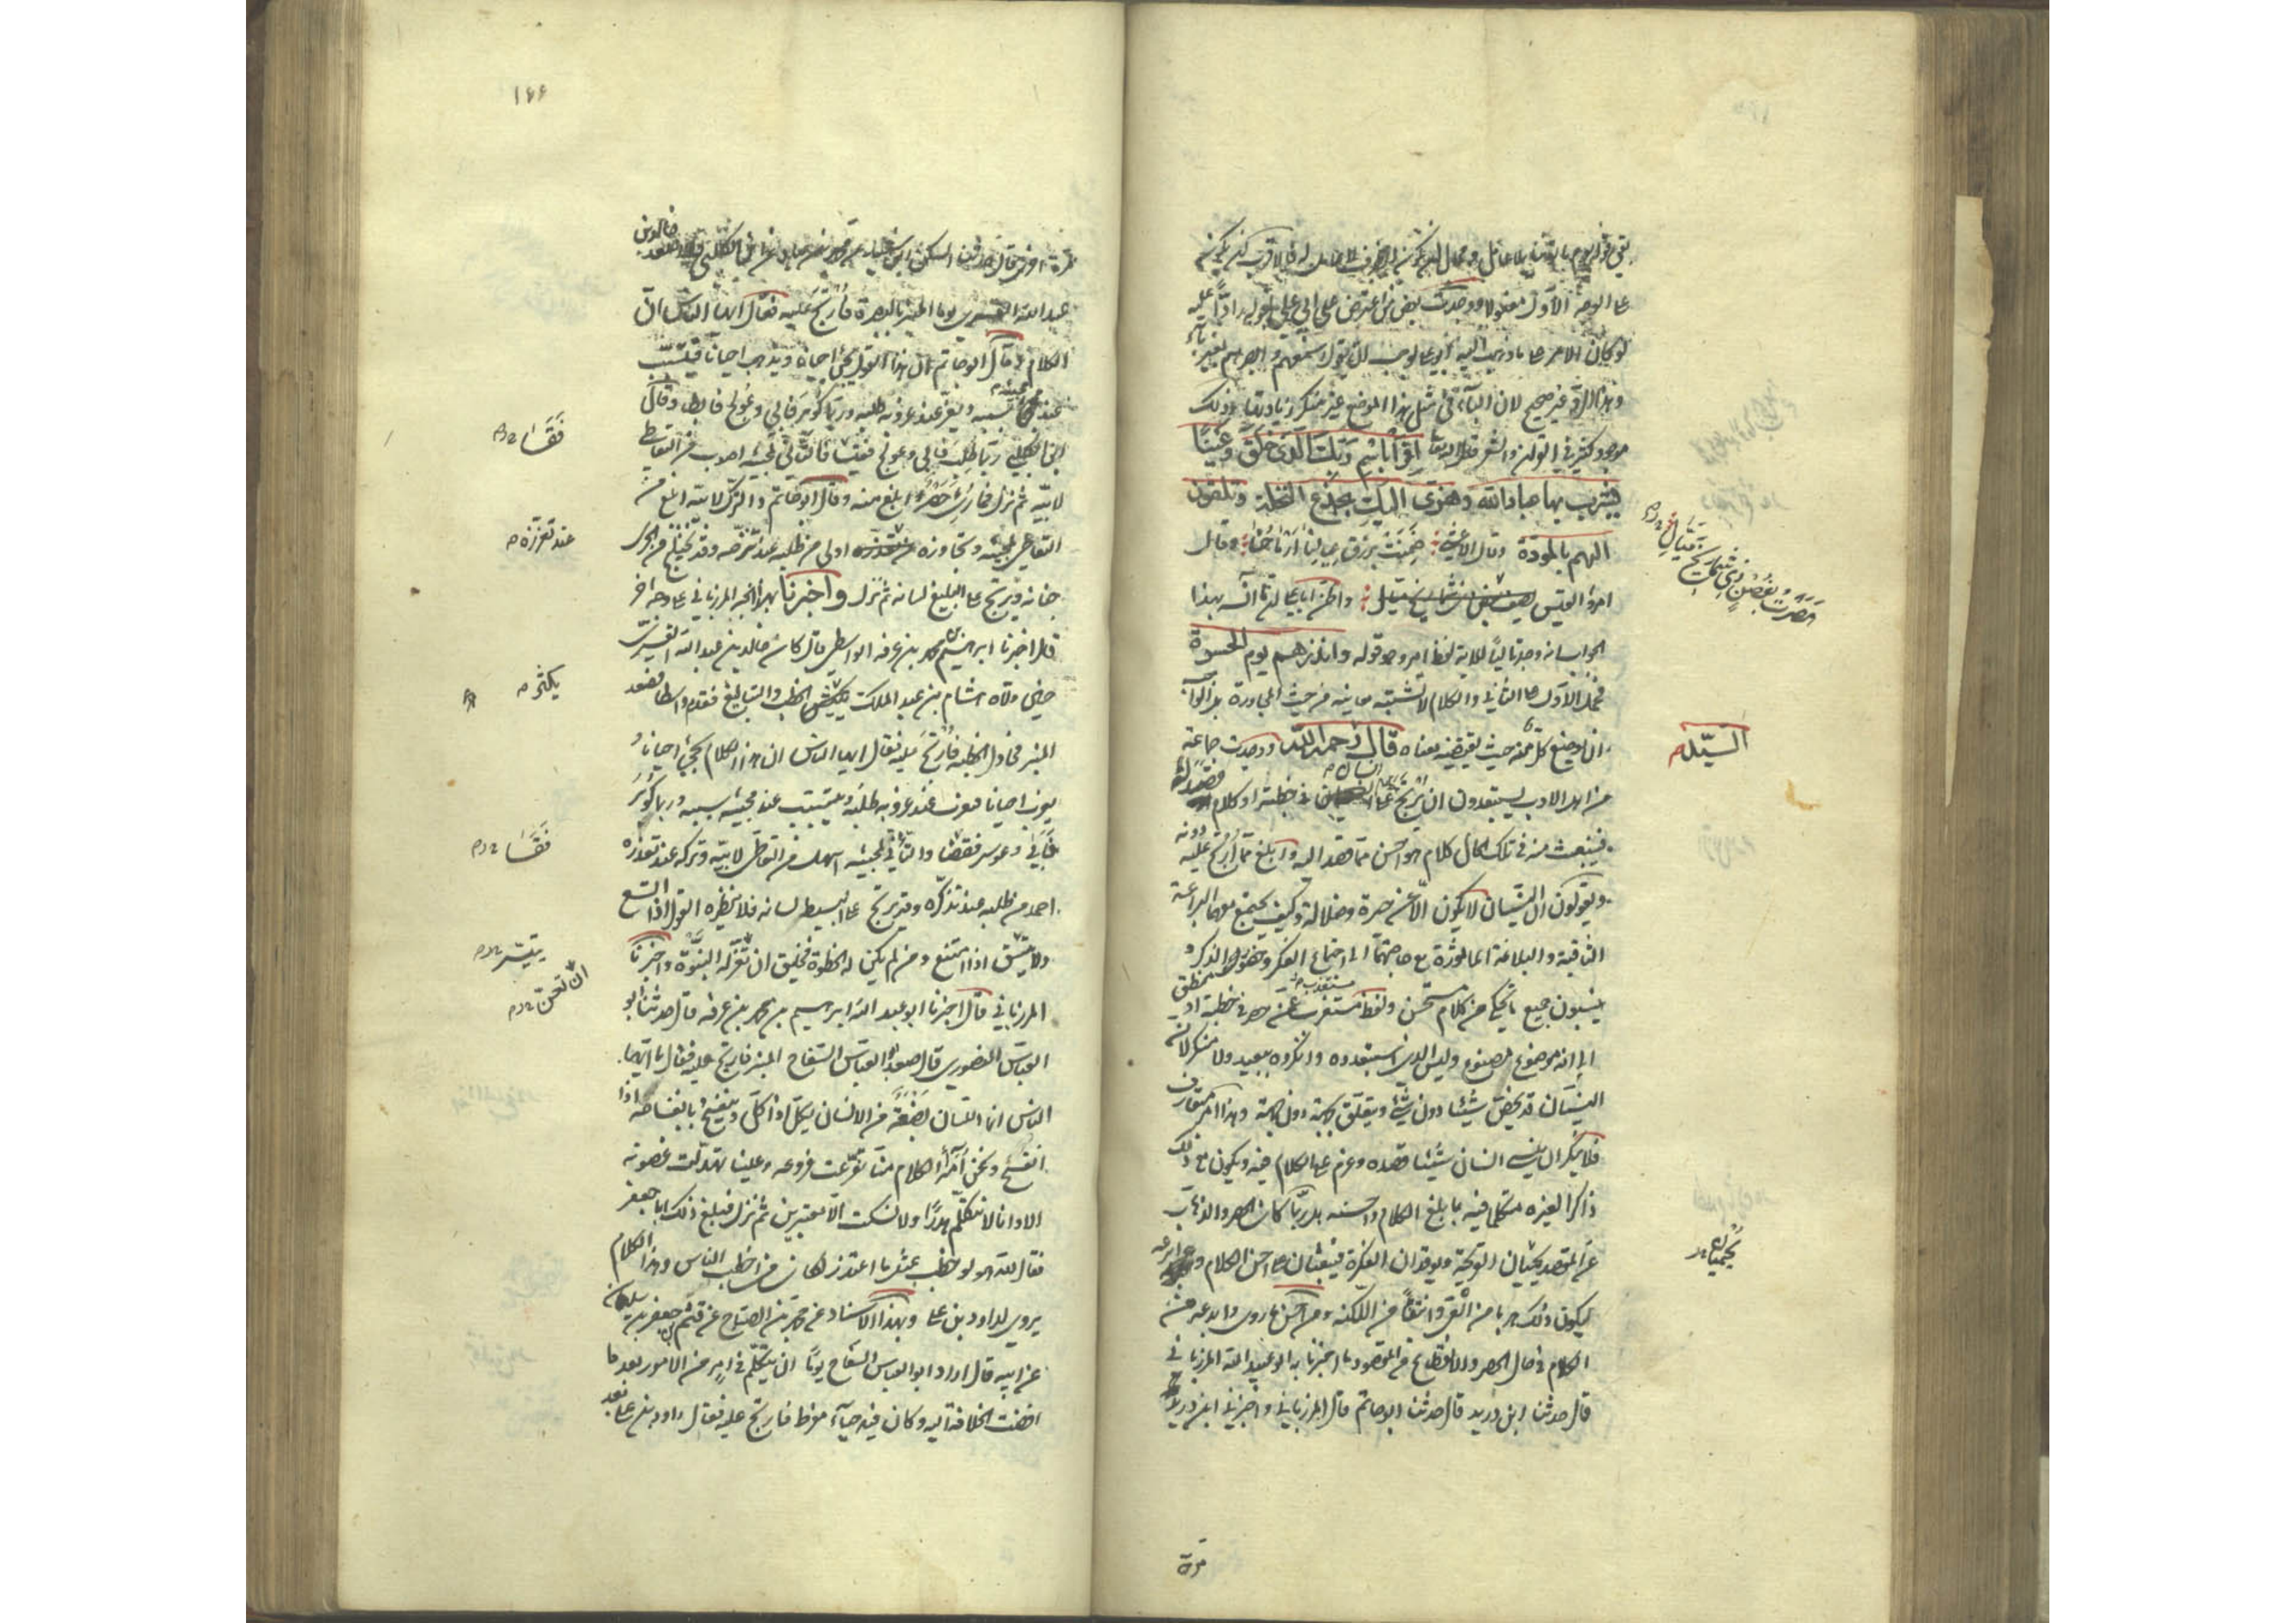 على الوجه الأول معقولا ووجدت بعض من اعترض على أبي علي يقول رادا عليه
لو كان الامر على ما ذهب اليه ابو علي لوجب ان يقول اسمعهم وابصرهم بغير باء
وهذا الرد غير صحيح لان الباء في مثل هذا الموضع غير منكر زيادتها وذلك
موجود كثير في القران والشعر قال الله تعالى اقرأ باسم ربك الذي خلق وعينا
يشرب بها عباد الله وهزي اليك بجذع النخلة وتلقون
اليهم بالمودة وقال الاعشى ضمنت برزق عيالنا ارماحنا وقال
امرؤ القيس واظن ابا علي لما رآى انه بهذا
الجواب انه وجد تاليا للاية لفظ امر وهو قوله وانذرهم يوم الحسرة
فحمل الاول على الثاني والكلام لا تشتبه معانيه من حيث المجاورة بل الواجب
ان يوضع كل منه حيث يقتضيه معناه قال رحمه الله ووجدت جماعة
من اهل الادب يستبعدون ان يرتج على انسان في خطبة او كلام قصد له
فينبعث منه في تلك الحال كلام هو احسن مما قصد اليه وابلغ مما ارتج عليه دونه
ويقولون ان النسيان لا يكون الا عن حيرة وضلالة وكيف تجتمع معهما البراعة
الثاقبة والبلاغة الماثورة مع حاجتهما الى اجتماع الفكر وحضور الذكر و
ينسبون جميع ما يحكى من كلام مستحسن ولفظ مستعذب عمن حصر في خطبة او منطق
الى انه موضوع مصنوع وليس الذي استبعدوه وانكروه ببعيد ولا منكر لان
النسيان قد يخص شيئا دون شيء ويتعلق بجهة دون جهة وهذا امر متعارف
فلا ينكر ان ينسى انسان شيئا قصده وعزم على الكلام فيه ويكون مع ذلك
ذاكرا لغيره متكلما فيه بابلغ الكلام واحسنه بل ربما كان الحصر والذهاب
عن القصد يحميان القريحة ويوقدان الفكرة فيبعثان على احسن الكلام وابرعه
ليكون ذلك هربا من العي وانتفاء من اللكنة ومن احسن ما روي وابدعه من
الكلام في حال الحصر والانقطاع عن المقصود ما اخبرنا به ابو عبيد الله المرزباني
قال حدثنا ابن دريد قال حدثنا ابو حاتم قال المرزباني واخبرني ابن دريد
مرة
هصرت بغصن ذي شماريخ ميال
السيد م
يحميان
١٦٦
مرة اخرى قال حدثنا السكن ابن سعيد عن محمد بن عباد عن ابن الكلبي قال صعد خالد بن
عبد الله القسري يوما المنبر بالبصرة فارتج عليه فقال ايها الناس ان
الكلام وقال ابو حاتم ان هذا القول يجيء احيانا ويذهب احيانا فيتسبب
عند مجيئه سببه ويعز عند عزوبه طلبه وربما كوبر فابى وعولج فابطا وقال
ابن الكلبي ربما طلب فابى وعولج فقسا فالتأني لمجيئه اصوب من التعاطي
لابيه ثم نزل فما رئي حصر ابلغ منه وقال ابو حاتم والترك لابيه ابلغ من
التعاطي لمجيئه وتجاوزه عند تعذره اولى من طلبه عند تنكره وقد يختلج من الجري
جنانه ويرتج على البليغ لسانه ثم نزل واخبرنا بهذا الخبر المرزباني على وجه اخر
قال اخبرنا ابراهيم بن محمد بن عرفة الواسطي قال كان خالد بن عبد الله القسري
حين ولاه هشام بن عبد الملك يكثر الخطب والتبالغ فقدم واسطا فصعد
المنبر فحاول الخطبة فارتج عليه فقال ايها الناس ان هذا الكلام يجيء احيانا و
يعزب احيانا فيعز عند عزوبه طلبه ويتسبب عند مجيئه سببه وربما كوبر
فابى وعوسر فقسا والتأني لمجيئه اسهل من التعاطي لابيه وتركه عند تعذره
احمد من طلبه عند تنكره وقد يرتج على البسيط لسانه فلا ينظره القول اذا اتسع
ولا يتيسر اذا امتنع ومن لم يكن له الخطوة فخليق ان تعن له النبوة واخبرنا
المرزباني قال اخبرنا ابو عبد الله ابراهيم بن محمد بن عرفة قال حدثنا ابو
العباس المنصوري قال صعد ابو العباس السفاح المنبر فارتج عليه فقال يا ايها
الناس انما اللسان بضعة من الانسان يكل اذا كل وينفسح بانفساحه اذا
انفسح ونحن امراء الكلام منا تفرعت فروعه وعلينا تهدلت غصونه
الا وانا لا نتكلم هذرا ولا نسكت الا معتبرين ثم نزل فبلغ ذلك ابا جعفر
فقال لله هو لو خطب بمثل ما اعتذر لكان من اخطب الناس وهذا الكلام
يروى لداود بن علي وبهذا الاسناد عن محمد بن الصباح عن قثم بن جعفر بن سليمان
عن ابيه قال اراد ابو العباس السفاح يوما ان يتكلم في امر من الامور بعد ما
افضت الخلافة اليه وكان فيه حياء مفرط فارتج عليه فقال داود بن علي بعد
فقسا
عند تعززه م
يكثر م
فقسا
يتيسر
ان تعن